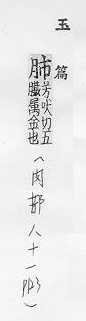 玉篇
肺芳吠切五
臟屬金也
(肉部八十一 P83)